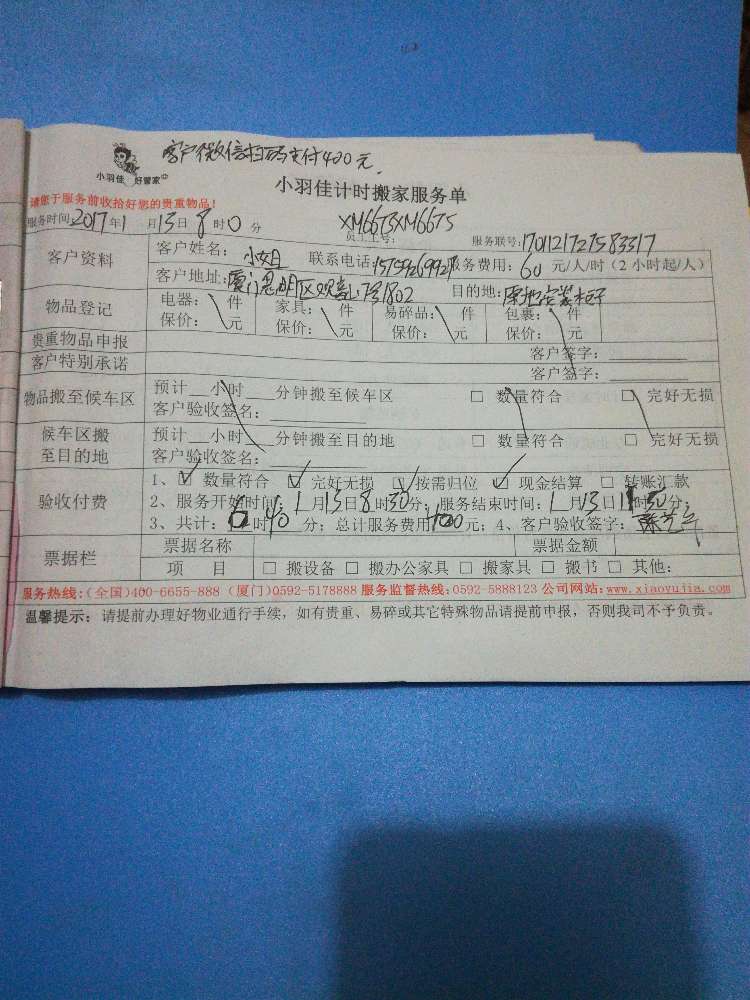 客户微信扫码支付400元.
小羽佳 好管家
小羽佳计时搬家服务单
请您于服务前收拾好您的贵重物品!
服务时间:2017年1月13日8时0分 员工工号: XM6673XM6675 服务联号:170112172758 3317
客户资料 客户姓名: 小姐 联系电话: 服务费用: 60 元/人/时(2小时起/人)
客户地址:厦门思明区观 1802 目的地:原地安装柜子
物品登记 电器: 件 家具: 件 易碎品: 件 包裹: 件
保价: 元 保价: 元 保价: 元 保价: 元
贵重物品申报 客户签字:
客户特别承诺 客户签字:
物品搬至候车区 预计 小时 分钟搬至候车区 □ 数量符合 □ 完好无损
客户验收签名:
候车区搬至目的地 预计 小时 分钟搬至目的地 □ 数量符合 □ 完好无损
客户验收签名:
验收付费 1、☑ 数量符合 ☑ 完好无损 ☑ 按需归位 ☑ 现金结算 □ 转账汇款
2、服务开始时间:1月13日8时30分;服务结束时间:1月13日11时50分;
3、共计: 时40分;总计服务费用400元;4、客户验收签字:
票据栏 票据名称 票据金额
项 目 □ 搬设备 □ 搬办公家具 □ 搬家具 □ 搬书 □ 其他:
服务热线:(全国)400-6655-888 (厦门)0592-5178888 服务监督热线:0592-5888123 公司网站:www.xiaoyujia.com
温馨提示: 请提前办理好物业通行手续,如有贵重、易碎或其它特殊物品请提前申报,否则我司不予负责。